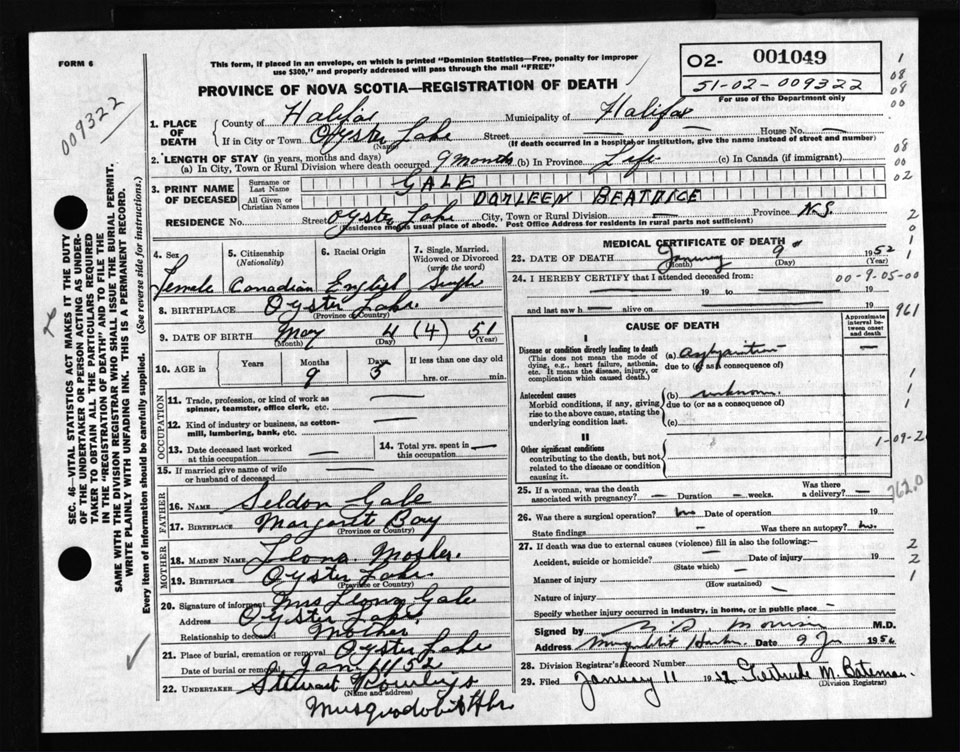 FORM 6
This form, if placed in an envelope, on which is printed "Dominion Statistics—Free, penalty for improper
use $300," and properly addressed will pass through the mail "FREE"
PROVINCE OF NOVA SCOTIA—REGISTRATION OF DEATH
02- 001049
51-02-009322
For use of the Department only
009322
1. PLACE OF DEATH
County of Halifax Municipality of Halifax
If in City or Town Oyster Lake Street — House No. —
(Name) (If death occurred in a hospital or institution, give the name instead of street and number)
2. LENGTH OF STAY (in years, months and days)
(a) In City, Town or Rural Division where death occurred 9 months (b) In Province Life (c) In Canada (if immigrant)
3. PRINT NAME OF DECEASED
Surname or Last Name GALE
All Given or Christian Names DORLEEN BEATRICE
RESIDENCE No. Street Oyster Lake City, Town or Rural Division — Province N.S.
(Residence means usual place of abode. Post Office Address for residents in rural parts not sufficient)
4. Sex 5. Citizenship (Nationality) 6. Racial Origin 7. Single, Married, Widowed or Divorced (write the word)
Female Canadian English Single
8. BIRTHPLACE Oyster Lake
(Province or Country)
9. DATE OF BIRTH May 4 (4) 51
(Month) (Day) (Year)
10. AGE in Years Months Days If less than one day old
9 5 hrs. or min.
OCCUPATION
11. Trade, profession, or kind of work as spinner, teamster, office clerk, etc. —
12. Kind of industry or business, as cotton-mill, lumbering, bank, etc. —
13. Date deceased last worked at this occupation — 14. Total yrs. spent in this occupation —
15. If married give name of wife or husband of deceased —
FATHER
16. NAME Seldon Gale
17. BIRTHPLACE Margarets Bay
(Province or Country)
MOTHER
18. MAIDEN NAME Mosher.
19. BIRTHPLACE Oyster Lake.
(Province or Country)
20. Signature of informant Mrs Gale
Address Oyster Lake.
Relationship to deceased Mother
21. Place of burial, cremation or removal Oyster Lake
Date of burial or removal Jan. 11/52
22. UNDERTAKER Stewart
(Name and address)
Musquodoboit Hbr.
MEDICAL CERTIFICATE OF DEATH
23. DATE OF DEATH January 9 1952
(Month) (Day) (Year)
24. I HEREBY CERTIFY that I attended deceased from: 00-9-05-00
19 to 19
and last saw h alive on 19
961
CAUSE OF DEATH
Approximate interval between onset and death
I
Disease or condition directly leading to death
(This does not mean the mode of dying, e.g., heart failure, asthenia, etc. It means the disease, injury, or complication which caused death.)
(a) —
due to (or as a consequence of)
Antecedent causes
Morbid conditions, if any, giving rise to the above cause, stating the underlying condition last.
(b) unknown.
due to (or as a consequence of)
(c)
II
Other significant conditions
contributing to the death, but not related to the disease or condition causing it.
1-09-2
25. If a woman, was the death associated with pregnancy? — Duration — weeks. Was there a delivery? —
762.0
26. Was there a surgical operation? no Date of operation 19
State findings — Was there an autopsy? no.
27. If death was due to external causes (violence) fill in also the following:—
Accident, suicide or homicide? — Date of injury 19
(State which)
Manner of injury
(How sustained)
Nature of injury —
Specify whether injury occurred in industry, in home, or in public place —
Signed by M.D.
Address Date 9 19
28. Division Registrar's Record Number
29. Filed January 11 1952 Gertrude M. Bateman.
(Division Registrar)
SEC. 46—VITAL STATISTICS ACT MAKES IT THE DUTY
OF THE UNDERTAKER OR PERSON ACTING AS UNDER-
TAKER TO OBTAIN ALL THE PARTICULARS REQUIRED
IN THE "REGISTRATION OF DEATH" AND TO FILE THE
SAME WITH THE DIVISION REGISTRAR WHO SHALL ISSUE THE BURIAL PERMIT.
WRITE PLAINLY WITH UNFADING INK. THIS IS A PERMANENT RECORD.
Every item of information should be carefully supplied. (See reverse side for instructions.)